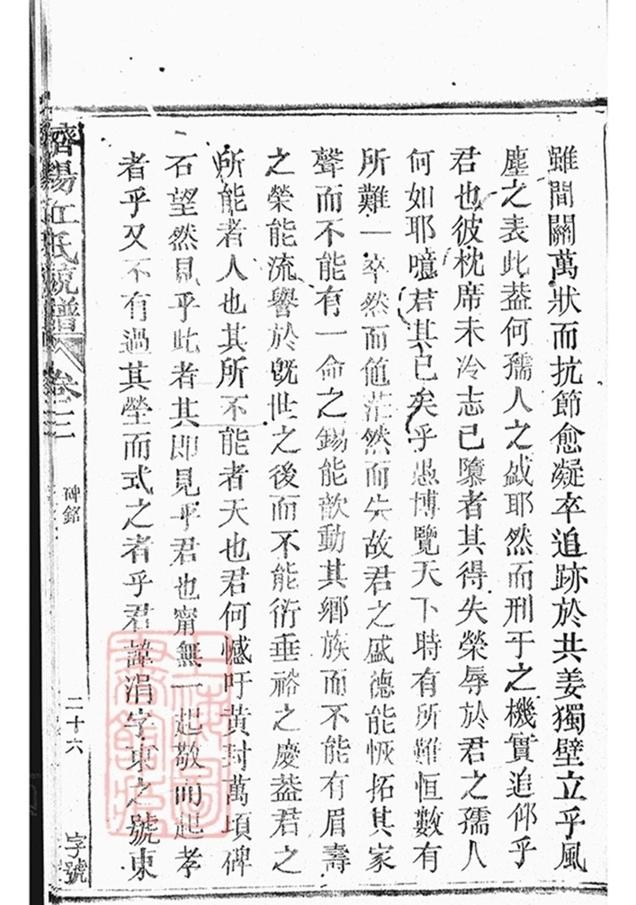 雖間關萬狀而抗節愈凝卒追跡於共姜獨壁立乎風
塵之表此葢何孺人之烖耶然而刑于之機實追仰乎
君也彼枕席未冷志已隳者其得失榮辱於君之孺人
何如耶噫君其已矣乎愚博覽天下時有所難恒數有
所難一卒然而値茫然而失故君之盛德能恢拓其家
聲而不能有一命之錫能歆動其鄉族而不能有眉壽
之榮能流譽於旣世之後而不能衍垂裕之慶葢君之
所能者人也其所不能者天也君何憾吁黃封萬頃碑
石望然見乎此者其即見乎君也甯無一起敬而起孝
者乎又不有過其塋而式之者乎君諱涓字東之號東
濟陽江氏統譜
卷三
碑銘
二十六
字號